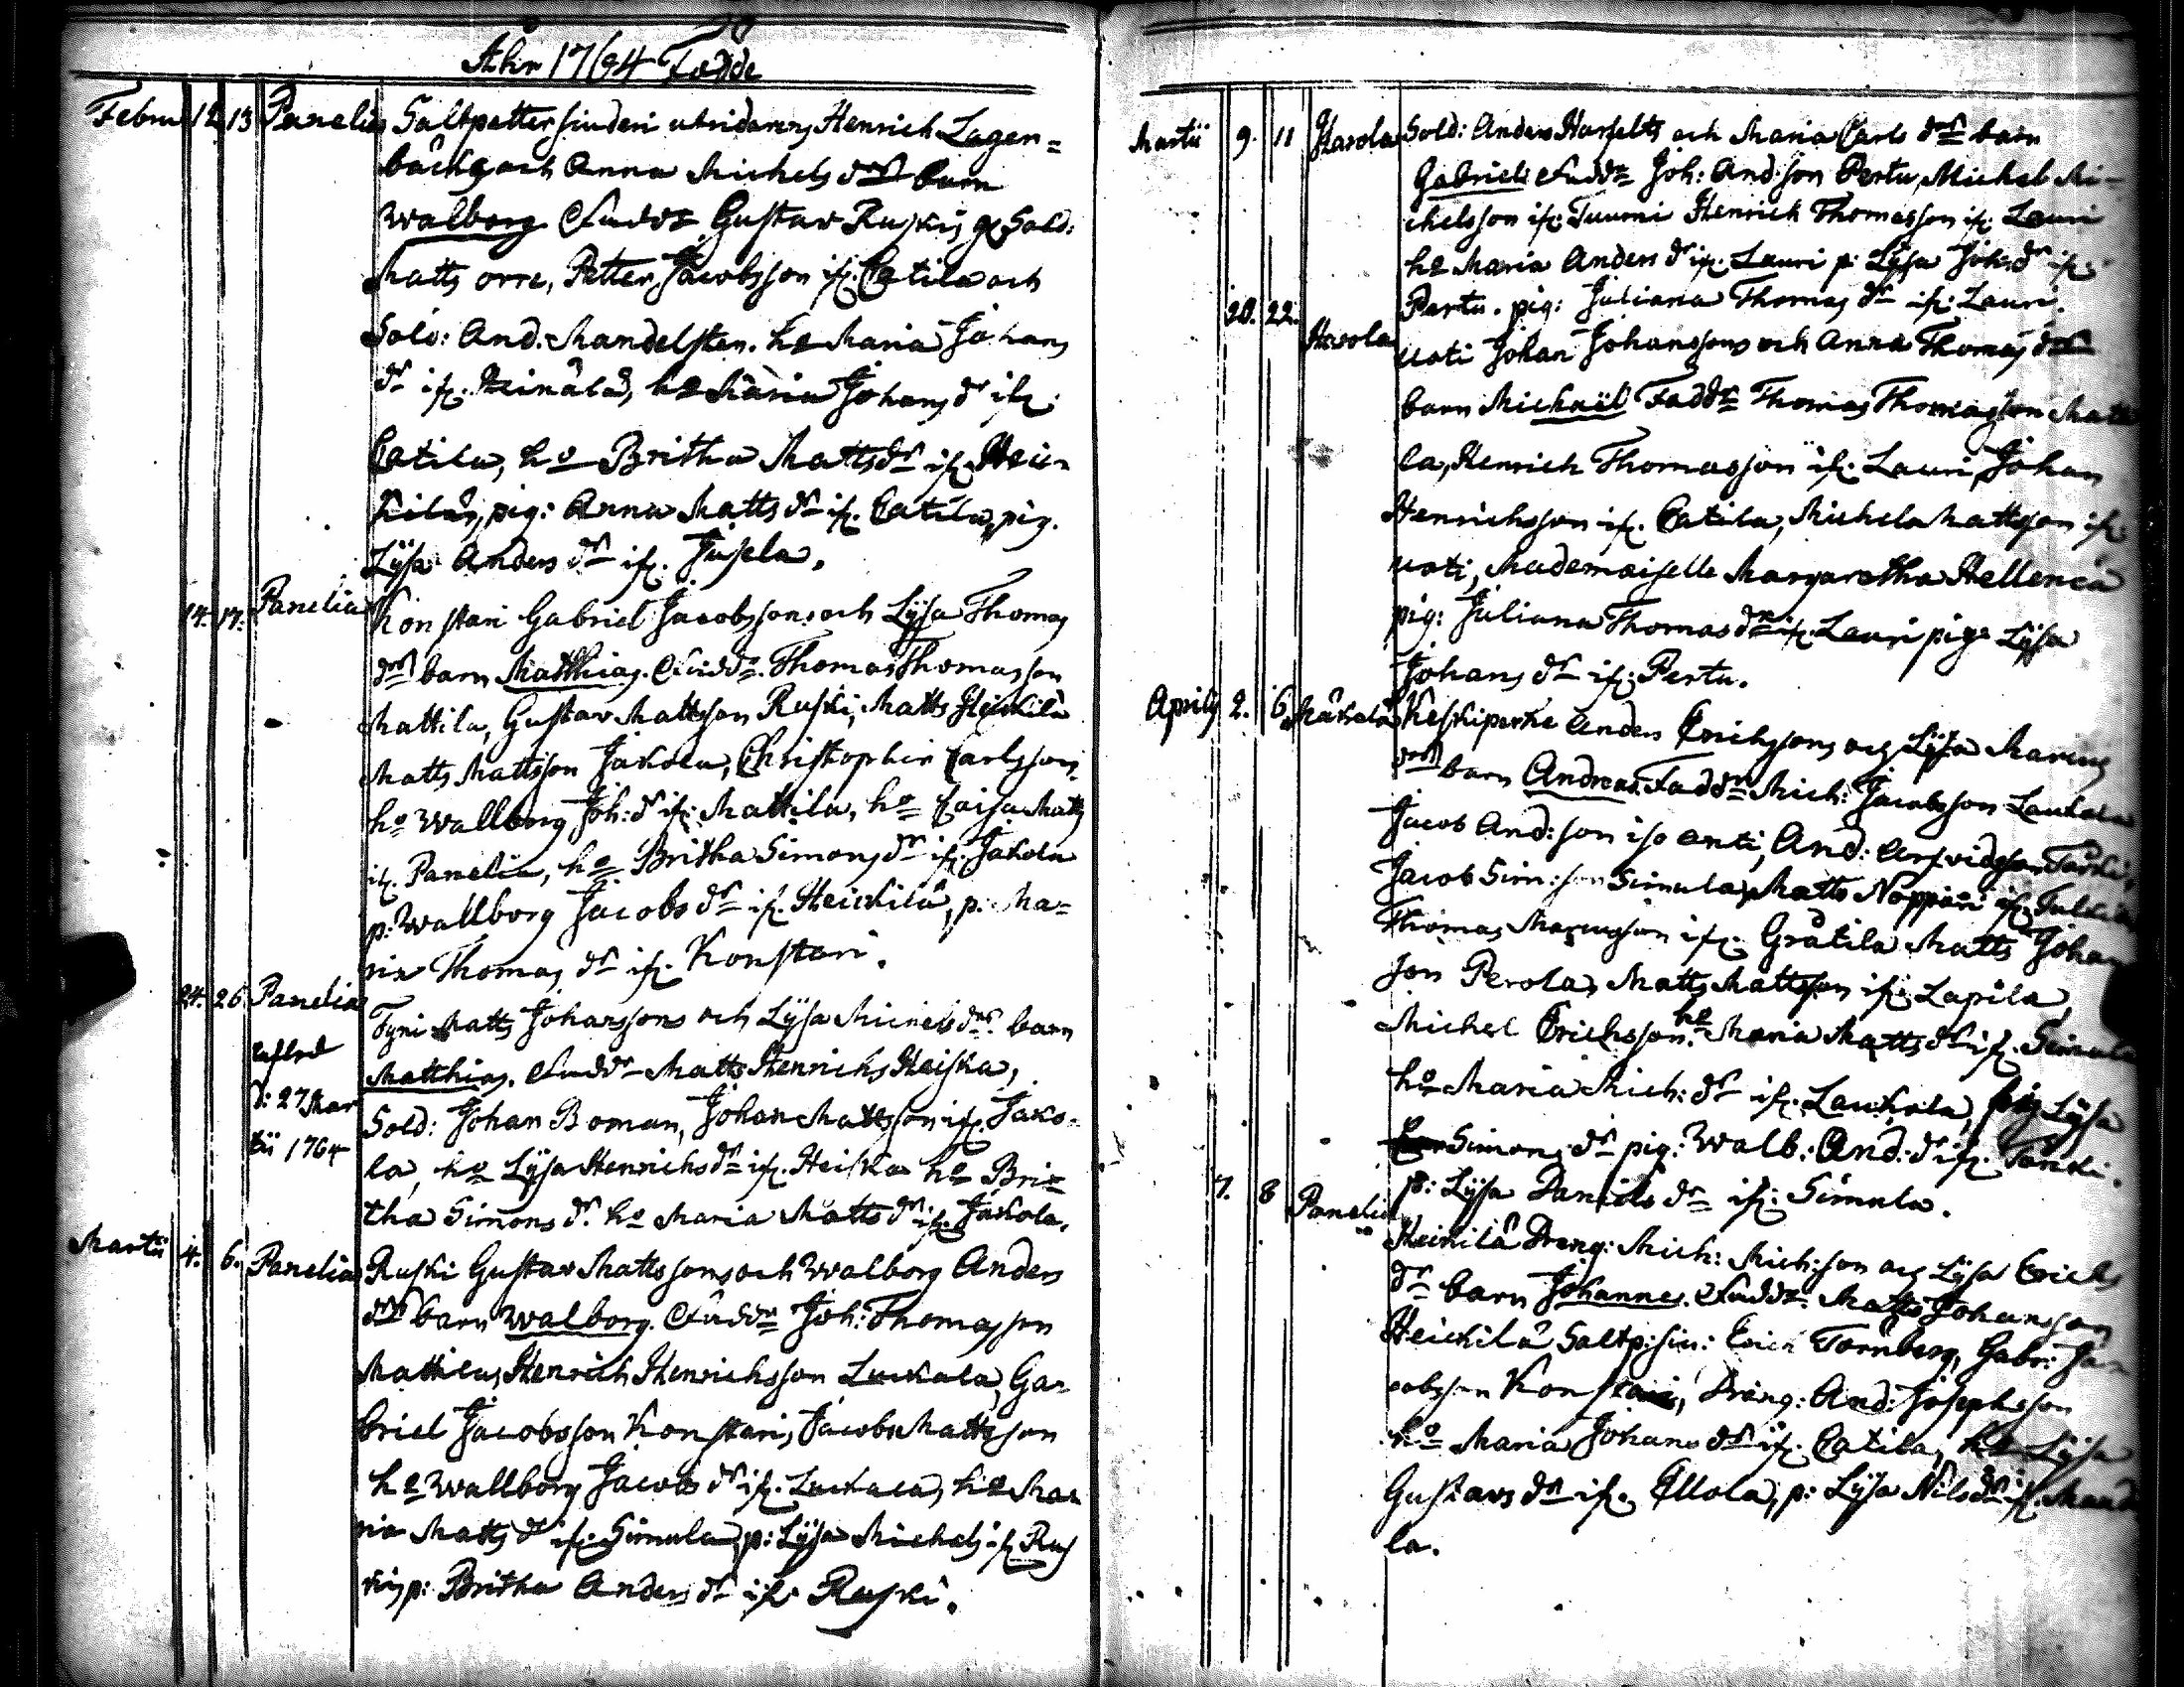 Åhr 1764 Födde
Febru 12 13 Panelia Saltpetter siuderi utridarens Henrich Lagen=
bäcks och Anna Michels drs barn
Walborg. Faddr Gustav Ruskis Sold:
Matts orre, Petter Jacobsson if. Catila och
Sold: And. Mandelsten. ho Maria Johans
dr if. Heinälä, ho Maria Johans dr if.
Catila, ho Britha Matts dr if. Heic-
kilä, pig: Anna Matts dr if. Catila, pig.
Lysa Anders dr if. Jusela.
14. 17. Panelia Konstari Gabriel Jacobssons och Lysa Thomas
drs barn Matthias. Faddr. Thomas Thomasson
Mattila, Gustav Mattsson Ruski, Matts Heickilä
Matts Mattsson Jakola, Christopher Carlsson,
ho Wallborg Joh: dr if. Mattila, ho Caisa Matts
if. Panelia, ho Britha Simons dr if. Jakola
p: Wallborg Jacobs dr if. Heickilä, p: Ma=
ria Thomas dr if. Konstari.
24. 26 Panelia Tyni Matts Johanssons och Lysa Michels drs. barn
Matthias. Faddr Matts Henrichs Heiska,
d: 27 Mar
tii 1764
Sold: Johan Boman, Johan Mattsson if. Jako-
la, ho Lysa Henrichs dr if. Heiska ho Bri=
tha Simons dr. ho Maria Matts dr if. Jakola.
Martii 4. 6. Panelia Ruski Gustav Mattssons och Walborg Anders
drs barn Walborg. Faddr Joh: Thomasson
Mattila, Henrich Henrichsson Luckala, Ga-
briel Jacobsson Konstari, Jacob Mattsson
ho Wallborg Jacobs dr if. Luckala, ho Ma-
ria Matts dr if. Simula, p: Lysa Michels if. Rus
ki, p: Britha Anders dr if. Ruski.
Martii 9. 11 Harola Sold: Anders Hasselts och Maria Carls drs barn
Gabriel. Faddr Joh: And:son Pertu, Michel Mi-
chelsson if. Tuumi Henrich Thomasson if. Lauri
ho Maria Anders dr if. Lauri p: Lysa Joh: dr if.
Pertu. pig: Juliana Thomas dr if. Lauri.
20. 22. Harola Uoti Johan Johanssons och Anna Thomas drs
barn Michaël Faddr Thomas Thomasson Matti
la, Henrich Thomasson if. Lauri, Johan
Henrichsson if. Catila, Michel Mattsson if.
Uoti, Mademoiselle Margaretha Hellenea
pig: Juliana Thomas dr if. Lauri pig: Lysa
Johans dr if. Pertu.
Aprilis 2. 6. Mäkelä Keskiperhe Anders Erichssons och Lysa Marcus
drs barn Andreas. Faddr Mich: Jacobsson Laukola
Jacob And:son iso anti, And: Arfvidsson Tarki,
Jacob Sim:son Simula, Matts Noppari if.
Thomas Marcusson if. Gråtila Matts Johan
son Perola, Matts Mattsson if. Lapila,
Michel Erichsson. ho Maria Matts dr if. Simula
ho Maria Mich: dr if. Laukola, pig Lysa
Simons dr pig: Walb: And: dr if. Tarki.
p: Lysa Daniels dr if. Simula.
7. 8 Panelia Heickilä Dräng: Mich: Mich:son och Lysa Erichs
dr barn Johannes. Faddr. Matts Johansson
Heickilä Saltp: siu: Erich Törnberg, Gabr: Ja-
cobsson Konstari, Dräng: And: Josephsson
ho Maria Johans dr if. Catila, ho Lysa
Gustavs dr if. Ellola, p: Lysa Nils dr if. Mand
la.